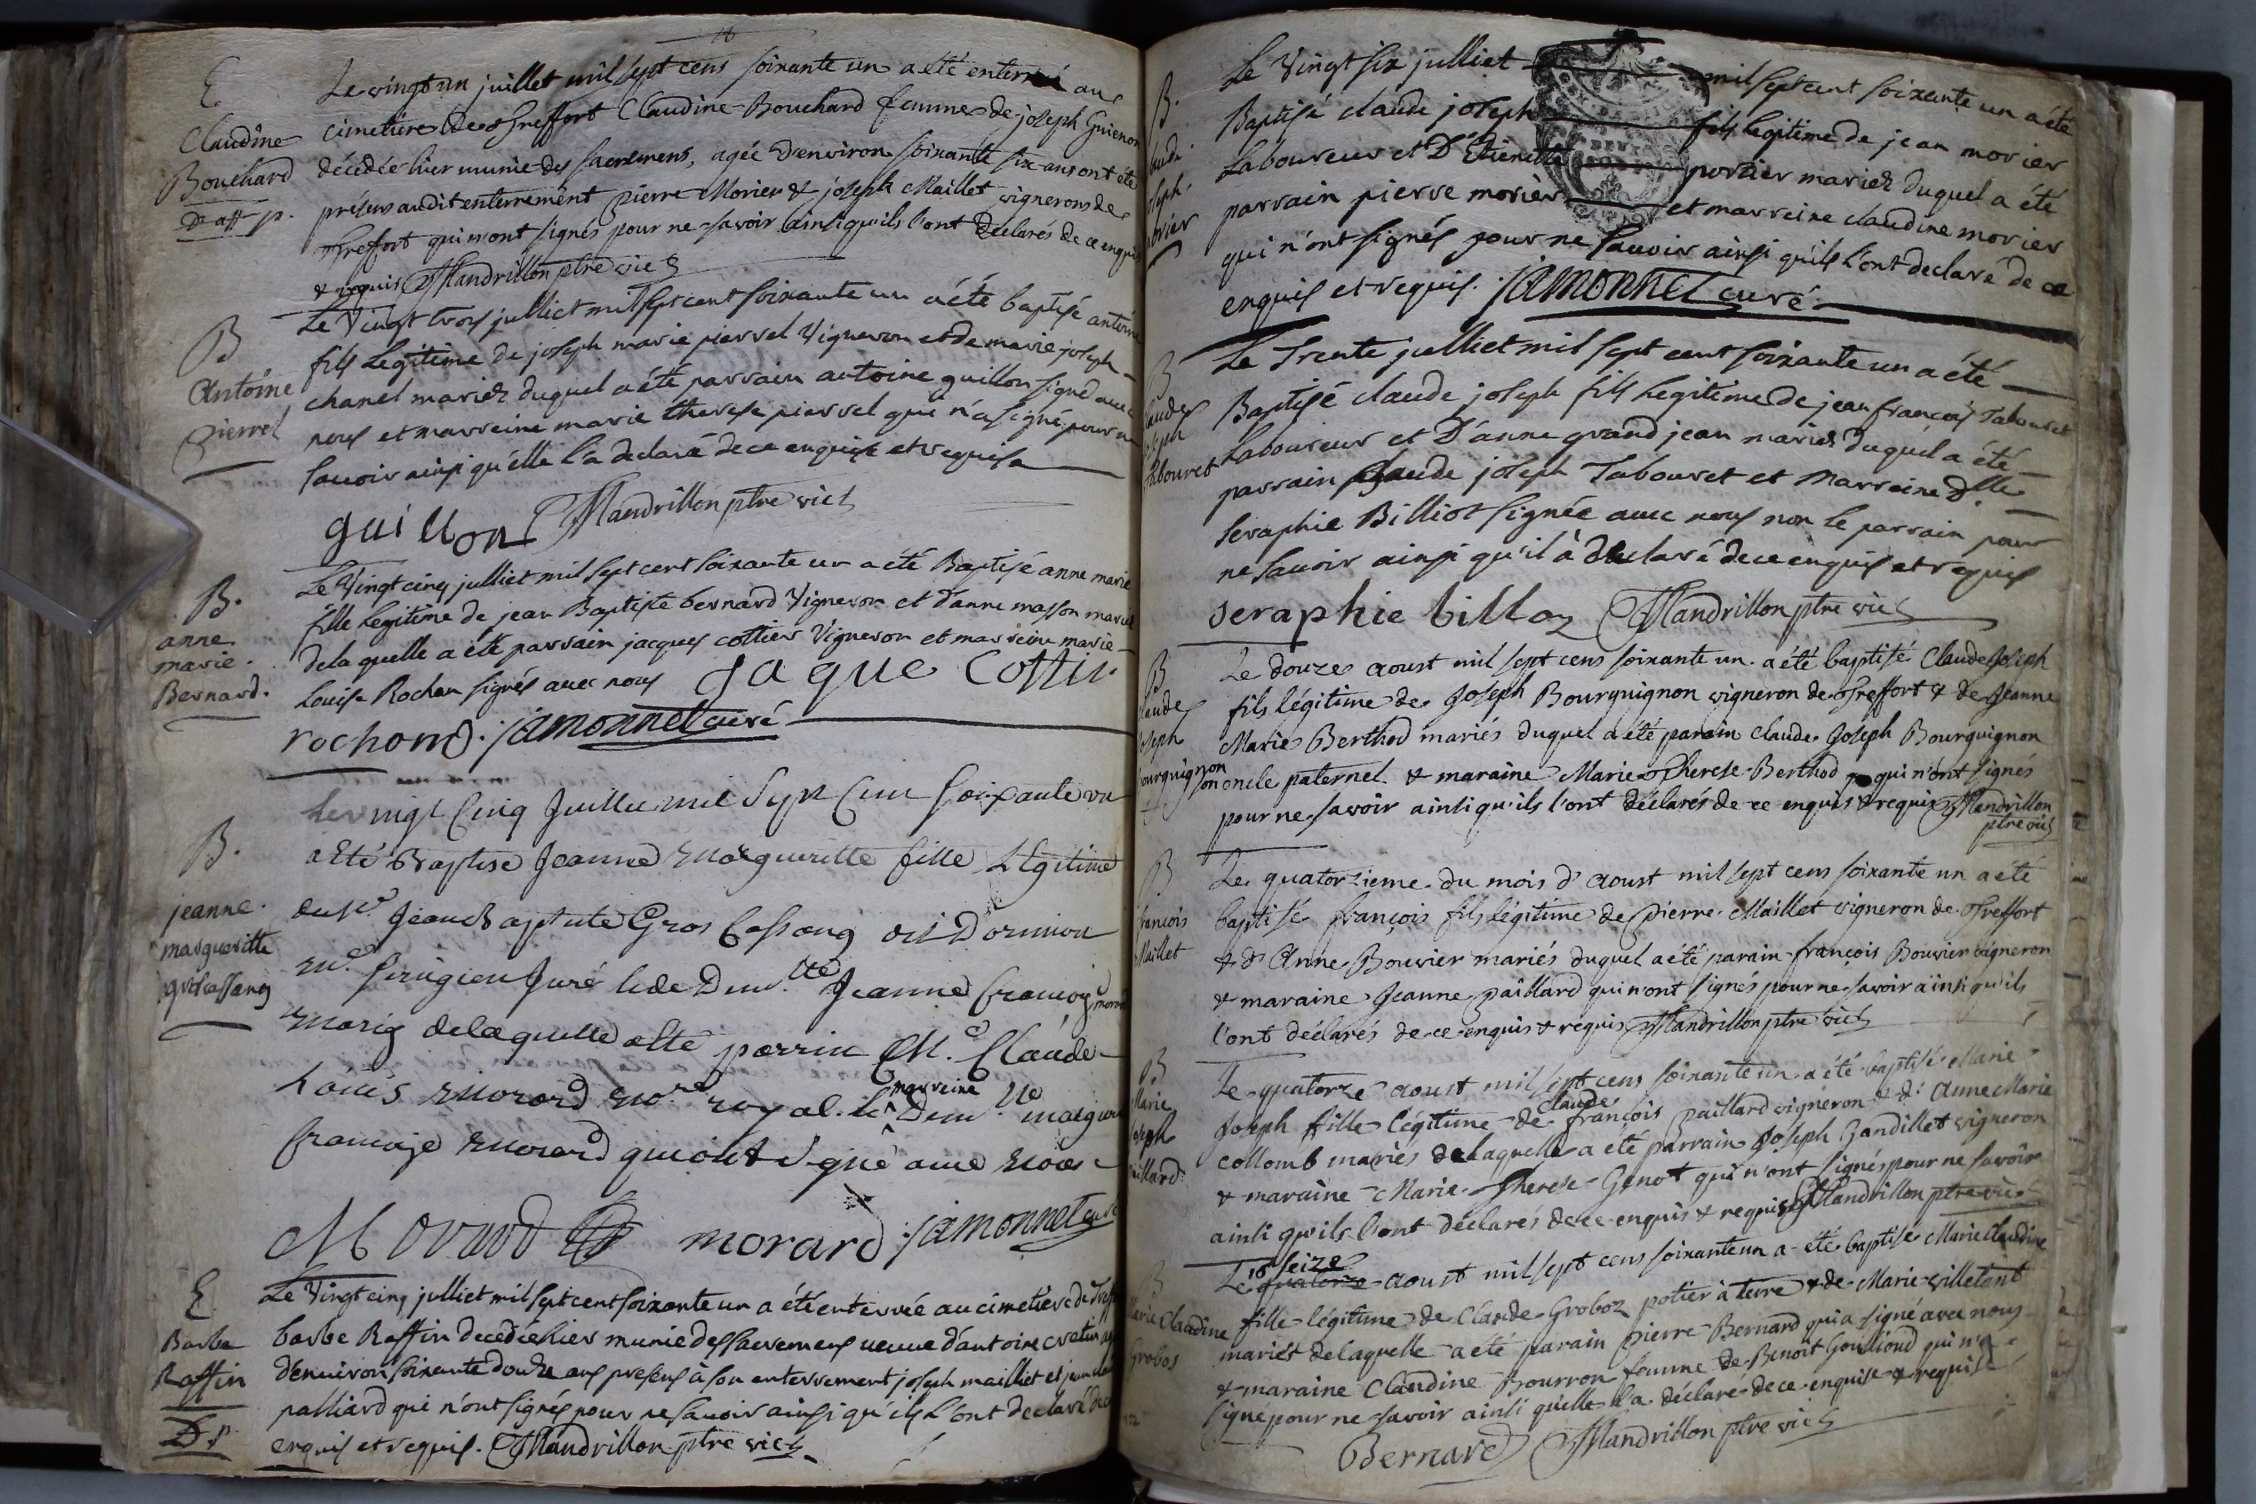 E
Claudine
Bouchard
Le vingt un juillet mil sept cens soixante un a été enterré au
cimetiere de Treffort Claudine Bouchard femme de joseph Guienon
décédée hier munie des sacremens, agée d'environ soixante six ans ont été
présens audit enterrement pierre Morier & joseph Maillet vignerons de
Treffort qui n'ont signés pour ne savoir ainsi qu'ils l'ont déclarés de ce enquis
& requis Mandrillon ptre vic
B
Antoine
Pierrel
Le Vingt trois julliet mil sept cent soixante un a été baptisé antoine
fils legitime de joseph marie pierrel Vigneron et de marie joseph
chanel mariez duquel a été parrain antoine guillon signé avec
nous et marreine marie therese pierrel que n'a signé pour ne
savoir ainsi qu'elle l'a declaré de ce enquise et requise
guillon Mandrillon ptre vic
B.
anne
marie.
Bernard.
Le Vingt cinq julliet mil sept cent soixante un a été Baptisé anne marie
fille legitime de jean Baptiste bernard Vigneron et d'anne masson mariez
de la quelle a été parrain jacques cottier Vigneron et marreine marie
Louise Rochan signés avec nous jaque Cottir
rochond. jamonnet curé
B.
jeanne.
margueritte
groscassang
Le vingt Cinq Juillet mil Sept Cent Soixante un
a Eté Baptisé Jeanne Margueritte fille Légitime
du sr. Jean Baptiste Gros Cassang
me. Sirugien Juré & de Dem.lle Jeanne françoise morard
Mariez de laquelle a Eté parrin M.e Claude
Louis Morard no.re royal. & marreine Dem.lle margueritte
françoise Morard qui ont signé avec nous
Morard morard jamonnet curé
E
Barbe
Raffin
Le Vingt cinq julliet mil sept cent soixante un a été enterrée au cimetiere de Treffort
barbe Raffin decedée hier munie des sacremens veuve d'antoine cretin agée
d'environ soixante douze ans presens à son enterrement joseph mailliet et jean
palliard qui n'ont signés pour ne savoir ainsi qu'ils l'ont declaré de ce
enquis et requis. Mandrillon ptre vic
B.
claude
joseph
morier
Le Vingt six julliet mil sept cent soixante un a été
Baptisé claude joseph fils legitime de jean morier
Laboureur et D'Etienette portier mariez duquel a été
parrain pierre morier et marreine claudine morier
qui n'ont signés pour ne savoir ainsi qu'ils l'ont declaré de ce
enquis et requis. jamonnet curé.
B
claude
joseph
Tabouret
Le Trente julliet mil sept cent soixante un a été
Baptisé claude joseph fils legitime de jean françois Tabouret
Laboureur et D'anne grand jean mariez duquel a été
parrain claude joseph Tabouret et Marreine Dlle
Seraphie Billioz signée avec nous non le parrain pour
ne savoir ainsi qu'il a declaré de ce enquis et requis
seraphie billoz Mandrillon ptre vic
B
Claude
Joseph
Bourguignon
Le douze aoust mil sept cens soixante un. a été baptisé Claude Joseph
fils légitime de Joseph Bourguignon vigneron de Treffort & de Jeanne
Marie Berthod mariés duquel a été parain Claude Joseph Bourguignon
son oncle paternel. & maraine Marie Therese Berthod qui n'ont signés
pour ne savoir ainsi qu'ils l'ont déclarés de ce enquis & requis Mandrillon
ptre vic
B
françois
Maillet
Le quatorzieme du mois d'aoust mil sept cens soixante un a été
baptisé françois fils légitime de Pierre Maillet vigneron de Treffort
& d'Anne Bouvier mariés duquel a été parain françois Bouvier vigneron
& maraine Jeanne paillard qui n'ont signés pour ne savoir ainsi qu'ils
l'ont déclarés de ce enquis & requis Mandrillon ptre vic
B
Marie
Joseph
paillard
Le quatorze aoust mil sept cens soixante un a été baptisé Marie
Joseph fille légitime de claude françois paillard vigneron & d'Anne Marie
collomb mariés de laquelle a été parrain Joseph Gandillet vigneron
& maraine Marie Therese Genot qui n'ont signés pour ne savoir
ainsi qu'ils l'ont déclarés de ce enquis & requis Mandrillon ptre vic
B
Marie Claudine
Grobos
Le quatorze 16 seize aoust mil sept cens soixante un a été baptisé Marie Claudine
fille légitime de Claude Groboz potier à terre & de Marie villetont
mariés de laquelle a été parain pierre Bernard qui a signé avec nous
& maraine Claudine Bourron femme de Benoit Goillioud qui n'a
signé pour ne savoir ainsi qu'elle l'a déclaré de ce enquise & requise
Bernard Mandrillon ptre vic